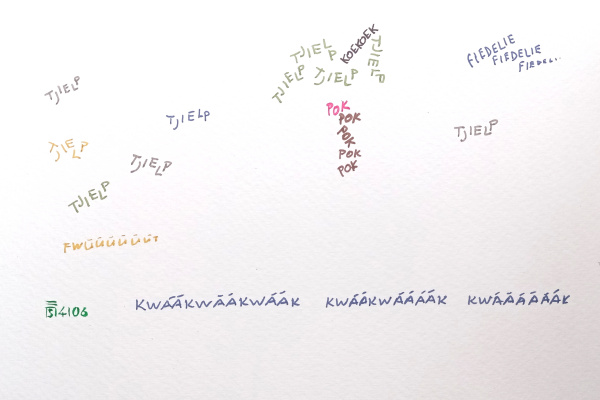 TJIELP
KOEKOEK
TJIELP
FIEDELIE
FIEDELIE
FIEDELI..
TJIELP
TJIELP
TJIELP
POK
POK
POK
POK
POK
TJIELP
TJIELP
TJIELP
TJIELP
TJIELP
TJIELP
FWÜÜÜÜÜÜT
KWÁÁKWÁÁKWÁÁK
KWÁÁKWÁÁÁÁK
KWÁÁÁÁÁÁK